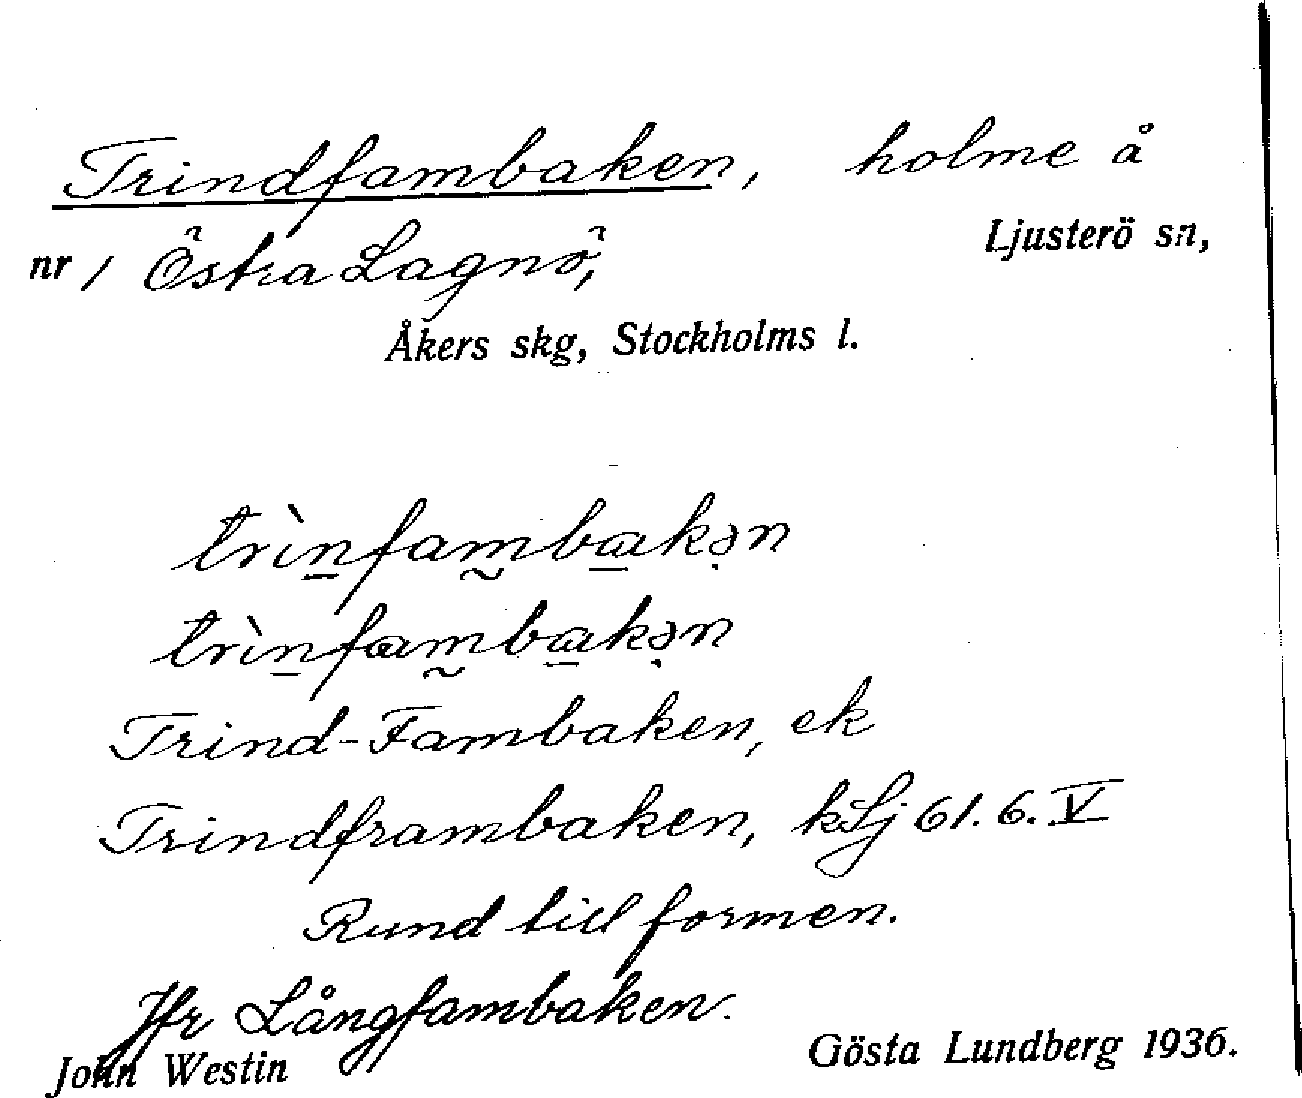 Trindfambaken, holme å
Ljusterö sn,
nr 1 Östra Lagnö,
Åkers skg, Stockholms l.
trìn̲fam̰ba̲kə̣n
trìn̲fɑm̰bɑ̲kə̣n
Trind-Fambaken, ek
Trindframbaken, kLj 61.6.V
Rund till formen.
Jfr Långfambaken.
John Westin
Gösta Lundberg 1936.